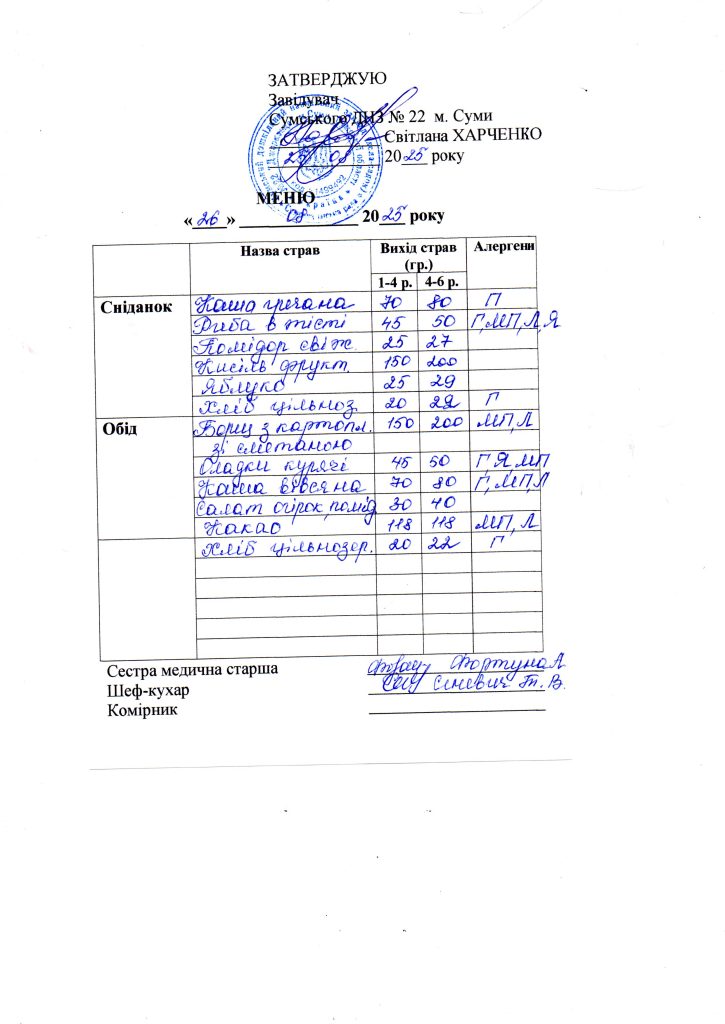 ЗАТВЕРДЖУЮ
Завідувач
Сумського ДНЗ № 22 м. Суми
Світлана ХАРЧЕНКО
25 08 2025 року
МЕНЮ
«26» 08 2025 року
Назва страв Вихід страв (гр.) Алергени
1-4 р. 4-6 р.
Сніданок Каша гречана 70 80 П
Риба в тісті 45 50 Г,МП,Л,Я
Помідор свіж. 25 27
Кисіль фрукт. 150 200
Яблуко 25 29
Хліб цільноз. 20 22 Г
Обід Борщ з картопл. 150 200 МП,Л
зі сметаною
Оладки курячі 45 50 Г,Я,МП
Каша вівсяна 70 80 Г,МП,Л
Салат огірок,помід 30 40
Какао 118 118 МП,Л
Хліб цільнозер. 20 22 Г
Сестра медична старша Фортуна Л
Шеф-кухар Сіневич Т. В.
Комірник